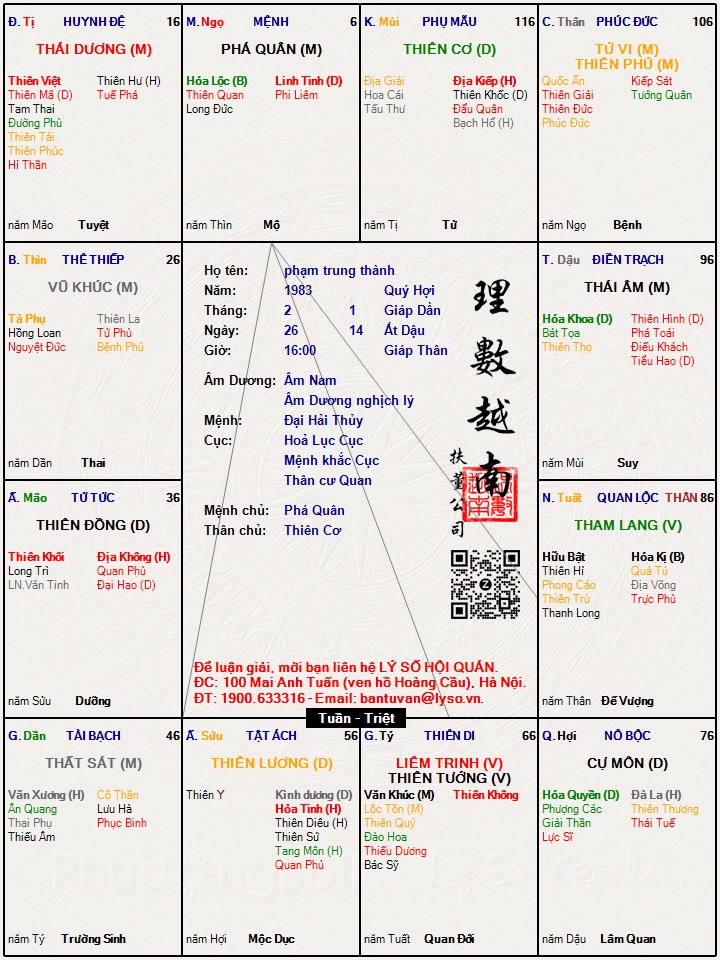 Đ. Tị HUYNH ĐỆ 16
THÁI DƯƠNG (M)
Thiên Việt Thiên Hư (H)
Thiên Mã (D) Tuế Phá
Tam Thai
Đường Phù
Thiên Tài
Thiên Phúc
Hỉ Thần
năm Mão Tuyệt
M. Ngọ MỆNH 6
PHÁ QUÂN (M)
Hóa Lộc (B) Linh Tinh (D)
Thiên Quan Phi Liêm
Long Đức
năm Thìn Mộ
K. Mùi PHỤ MẪU 116
THIÊN CƠ (D)
Địa Giải Địa Kiếp (H)
Hoa Cái Thiên Khốc (D)
Tấu Thư Đẩu Quân
Bạch Hổ (H)
năm Tị Tử
C. Thân PHÚC ĐỨC 106
TỬ VI (M)
THIÊN PHỦ (M)
Quốc Ấn Kiếp Sát
Thiên Giải Tướng Quân
Thiên Đức
Phúc Đức
năm Ngọ Bệnh
B. Thìn THÊ THIẾP 26
VŨ KHÚC (M)
Tả Phụ Thiên La
Hồng Loan Tử Phù
Nguyệt Đức Bệnh Phù
năm Dần Thai
Họ tên: phạm trung thành
Năm: 1983 Quý Hợi
Tháng: 2 1 Giáp Dần
Ngày: 26 14 Ất Dậu
Giờ: 16:00 Giáp Thân
Âm Dương: Âm Nam
Âm Dương nghịch lý
Mệnh: Đại Hải Thủy
Cục: Hoả Lục Cục
Mệnh khắc Cục
Thân cư Quan
Mệnh chủ: Phá Quân
Thân chủ: Thiên Cơ
理數越南
扶董公司
Z
Để luận giải, mời bạn liên hệ LÝ SỐ HỘI QUÁN.
ĐC: 100 Mai Anh Tuấn (ven hồ Hoàng Cầu), Hà Nội.
ĐT: 1900.633316 - Email: bantuvan@lyso.vn.
Tuần - Triệt
T. Dậu ĐIỀN TRẠCH 96
THÁI ÂM (M)
Hóa Khoa (D) Thiên Hình (D)
Bát Tọa Phá Toái
Thiên Thọ Điếu Khách
Tiểu Hao (D)
năm Mùi Suy
Ấ. Mão TỬ TỨC 36
THIÊN ĐỒNG (D)
Thiên Khôi Địa Không (H)
Long Trì Quan Phù
LN.Văn Tinh Đại Hao (D)
năm Sửu Dưỡng
N. Tuất QUAN LỘC THÂN 86
THAM LANG (V)
Hữu Bật Hóa Kị (B)
Thiên Hỉ Quả Tú
Phong Cáo Địa Võng
Thiên Trù Trực Phù
Thanh Long
năm Thân Đế Vượng
G. Dần TÀI BẠCH 46
THẤT SÁT (M)
Văn Xương (H) Cô Thần
Ân Quang Lưu Hà
Thai Phụ Phục Binh
Thiếu Âm
năm Tý Trường Sinh
Ấ. Sửu TẬT ÁCH 56
THIÊN LƯƠNG (D)
Thiên Y Kình dương (D)
Hỏa Tinh (H)
Thiên Diêu (H)
Thiên Sứ
Tang Môn (H)
Quan Phủ
năm Hợi Mộc Dục
G. Tý THIÊN DI 66
LIÊM TRINH (V)
THIÊN TƯỚNG (V)
Văn Khúc (M) Thiên Không
Lộc Tồn (M)
Thiên Quý
Đào Hoa
Thiếu Dương
Bác Sỹ
năm Tuất Quan Đới
Q. Hợi NÔ BỘC 76
CỰ MÔN (D)
Hóa Quyền (D) Đà La (H)
Phượng Các Thiên Thương
Giải Thần Thái Tuế
Lực Sĩ
năm Dậu Lâm Quan